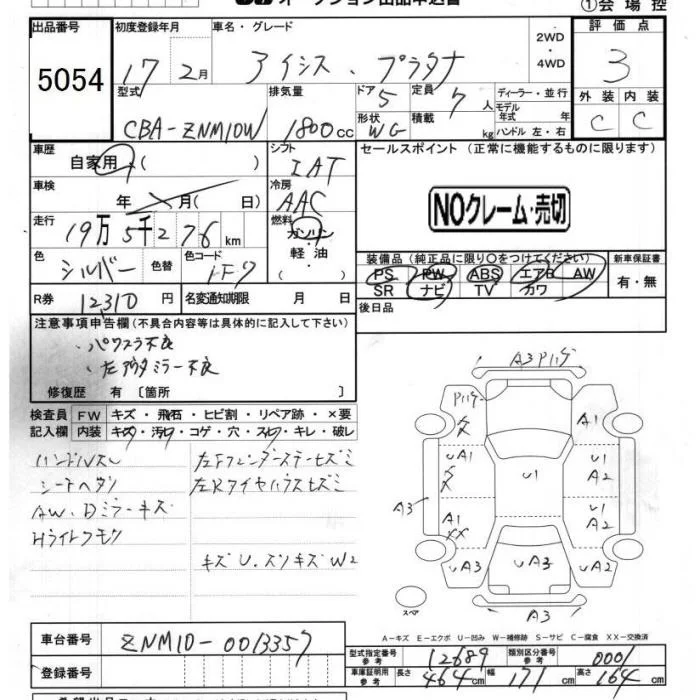 オークション出品申込書
①会場控
出品番号 初度登録年月 車名・グレード 2WD・4WD 評価点
5054 17 2月 アイシス、プラタナ 3
型式 排気量 ドア 5 定員 7人 ディーラー・並行 外装 内装
CBA-ZNM10W 1800cc 形状 WG 積載 kg モデル年式 年 ハンドル 左・右 C C
車歴 自家用( ) シフト IAT
セールスポイント (正常に機能するものに限ります)
車検 年 月( 日) 冷房 AAC
NOクレーム・売切
走行 19万5千276km 燃料 ガソリン・軽油・( )
色 シルバー 色替 色コード 1F7
装備品 (純正品に限り○をつけてください) 新車保証書
PS PW ABS エアB AW 有・無
SR ナビ TV カワ
R券 12310円 名変通知期限 月 日 後日品
注意事項申告欄(不具合内容等は具体的に記入して下さい)
・パワスラ不良
・左アウタミラー不良
修復歴 有 〔箇所 〕
検査員 FW キズ・飛石・ヒビ割・リペア跡・×要
記入欄 内装 キズ・汚レ・コゲ・穴・スレ・キレ・破レ
ハンドルスレ 左Fフェンダーステーヒズミ
シートヘタリ 左Rタイヤハウスヒズミ
AW、Dミラーキズ
Hライトクモリ
キズU、スリキズW2
A3 Pハゲ
Pハゲ
A1
UA1 U1 U1 A2
A3
A1 XX U1 A2
UA3 UA3 UA2
スペア A3
A-キズ E-エクボ U-凹み W-補修跡 S-サビ C-腐食 XX-交換済
車台番号 ZNM10-0013357
型式指定番号 参考 12689 類別区分番号 参考 0001
登録番号
車庫証明用 参考 長さ 464cm 幅 171cm 高さ 164cm